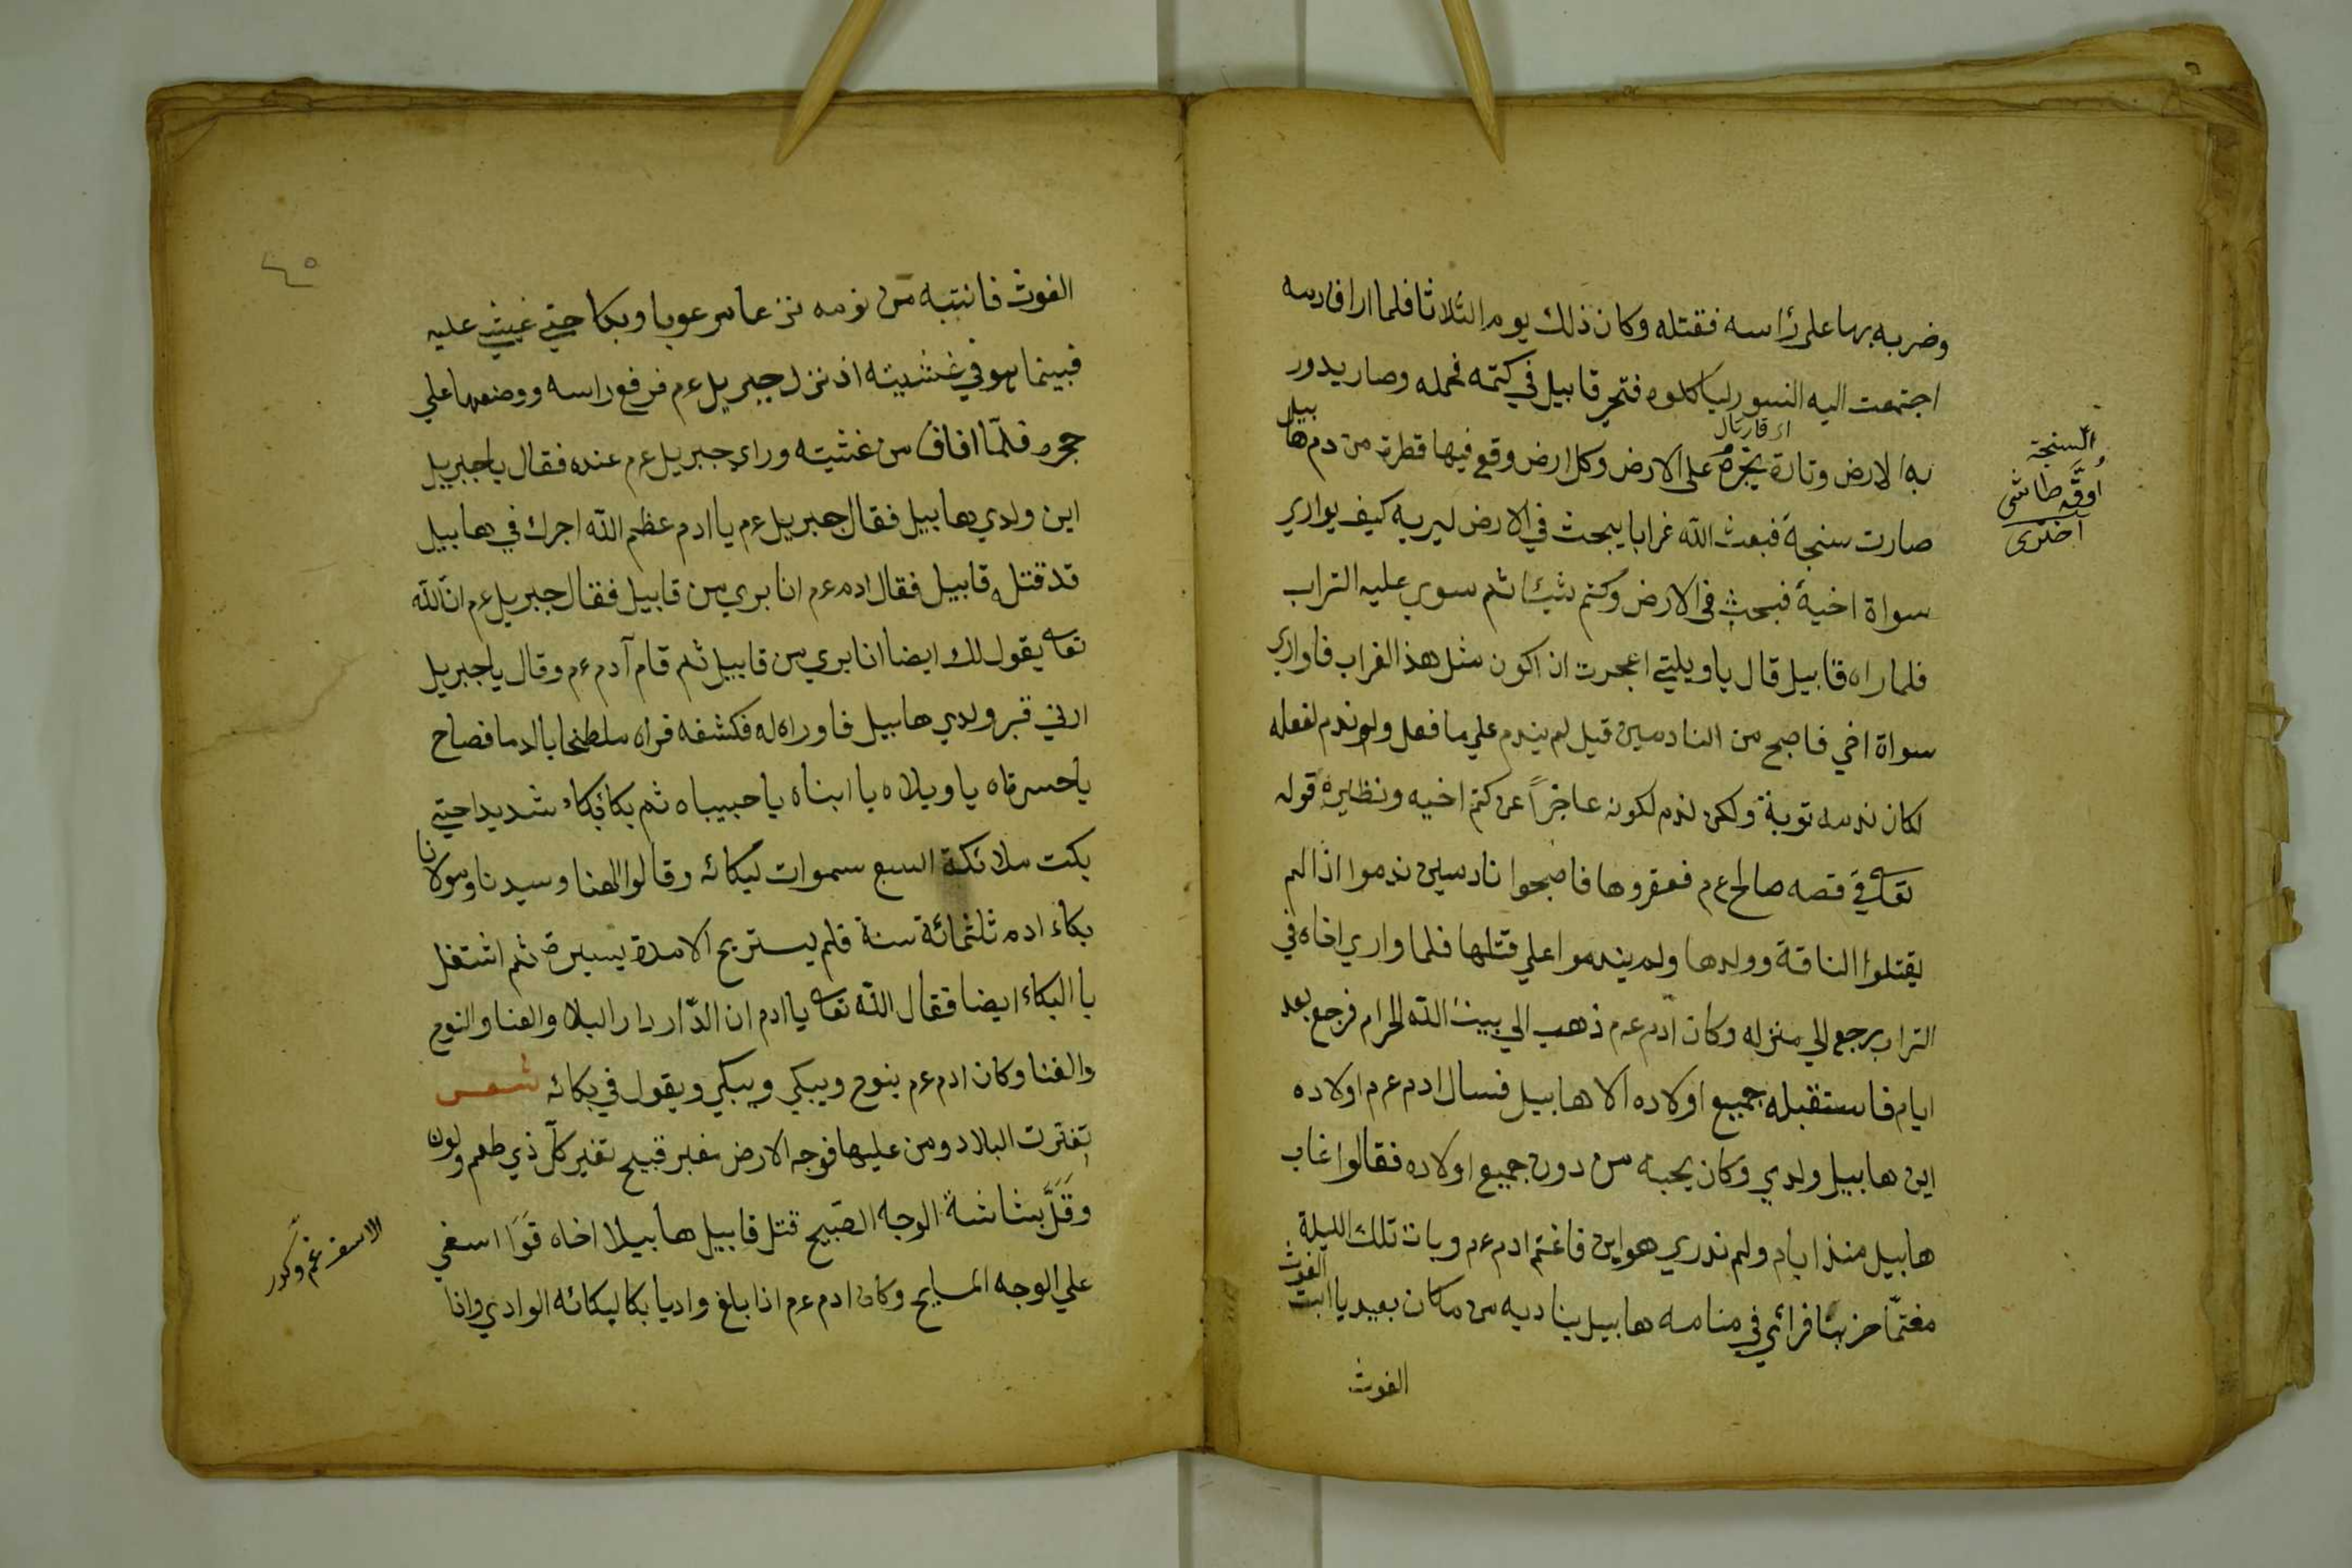 وضربه بها على رأسه فقتله وكان ذلك يوم الثلاثا فلما اراق دمه
اجتمعت اليه النسور لياكلوه فتحير قابيل في كتمه فحمله وصار يدور
به الارض وتارة يجره على الارض وكل ارض وقع فيها قطرة من دم هابيل
صارت سنجة فبعث الله غرابا يبحث في الارض ليريه كيف يواري
سواة اخيه فبحث في الارض وكتم شيئا ثم سوي عليه التراب
فلما راه قابيل قال ياويلتي اعجزت ان اكون مثل هذ الغراب فاواري
سواة اخي فاصبح من النادمين قيل لم يندم علي ما فعل ولو ندم لفعله
لكان ندمه توبة ولكن ندم لكونه عاجزاً عن كتم اخيه ونظيره قوله
تعالى في قصه صالح عم فعقروها فاصبحوا نادمين ندموا اذا لم
يقتلوا الناقة وولدها ولم يندموا علي قتلها فلما واري اخاه في
التراب رجع الي منزله وكان ادم عم ذهب الي بيت الله الحرام فرجع بعد
ايام فاستقبله جميع اولاده الا هابيل فسال ادم عم اولاده
اين هابيل ولدي وكان يحبه من دون جميع اولاده فقالوا غاب
هابيل منذ ايام ولم ندري هو اين فاغتم ادم عم وبات تلك الليلة
مغتمّا حزينا فرائي في منامه هابيل يناديه من مكان بعيد يا ابت الغوث
الغوث
السنجة
اوقه طاشى
اخترى
الغوث فانتبه من نومه نزعا مرعوبا وبكا حتي غشي عليه
فبينما هو في غشيته اذ نزل جبريل عم فرفع راسه ووضعها علي
حجره فلمّا افاق من غشيته وراي جبريل عم عنده فقال ياجبريل
اين ولدي هابيل فقال جبريل عم يا ادم عظم الله اجرك في هابيل
قد قتله قابيل فقال ادم عم انا بري من قابيل فقال جبريل عم ان الله
تعالى يقول لك ايضا انا بري من قابيل ثم قام آدم عم وقال ياجبريل
ارني قبر ولدي هابيل فاوراه له فكشفه فراه ملطخا بالدما فصاح
ياحسرتاه ياويلاه يا ابناه ياحبيباه ثم بكا بكاء شديدا حتي
بكت ملائكة السبع سموات لبكائه وقالوا الهنا وسيدنا ومولانا
بكاء ادم ثلثمائة سنة فلم يستريح الامدة يسيرة ثم اشتغل
باالبكاء ايضا فقال الله تعالى يا ادم ان الدّار دار البلا والعنا والنوح
والفنا وكان ادم عم ينوح ويبكي ويبكي ويقول في بكائه شعر
تغيرت البلاد ومن عليها فوجه الارض مغبر قبيح تغير كلّ ذي طعم ولون
وقَلَّ بشاشة الوجه الصّبيح قتل قابيل هابيلا اخاه فوا اسفي
علي الوجه المليح وكان ادم عم اذا بلغ واديا بكا لبكائه الوادي واذا
الاسف غم وكدر